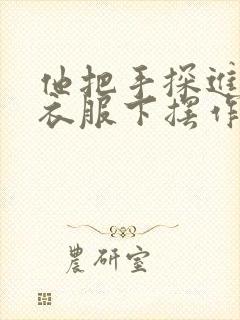 他把手探进
衣服下摆作
農研室